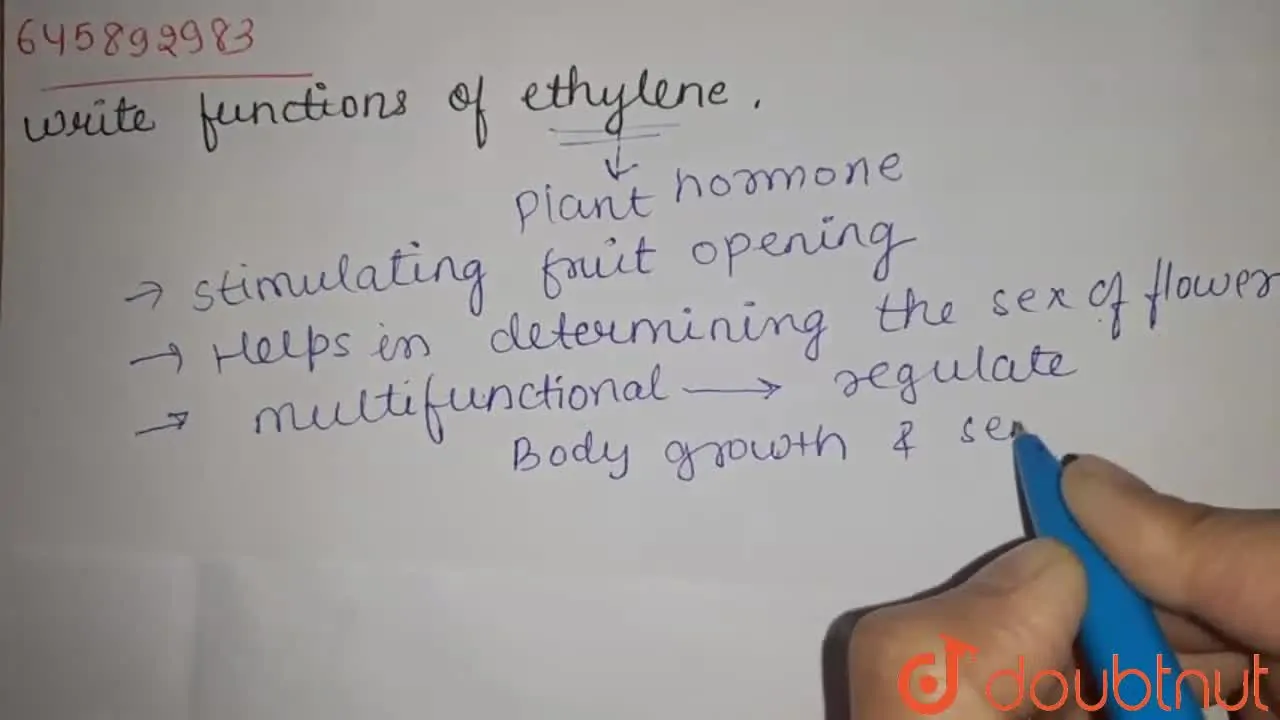 645892983
write functions of ethylene.
Plant hormone
→ stimulating fruit opening
→ Helps in determining the sex of flower
→ multifunctional → regulate
Body growth & sen
doubtnut